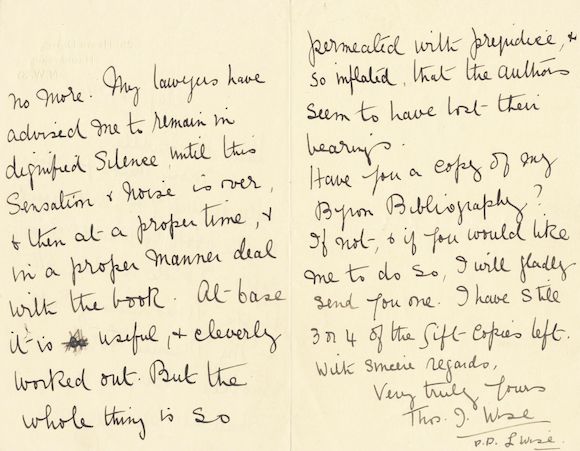 no more. My lawyers have
advised me to remain in
dignified silence until this
Sensation & Noise is over,
& then at a proper time, &
in a proper manner deal
with the book. At base
it is useful, & cleverly
worked out. But the
whole thing is so
permeated with prejudice, &
so inflated, that the authors
seem to have lost their
bearings.
Have you a copy of my
Byron Bibliography?
If not, & if you would like
me to do so, I will gladly
send you one. I have still
3 or 4 of the Gift-Copies left.
With sincere regards,
Very truly yours
Thos. J. Wise